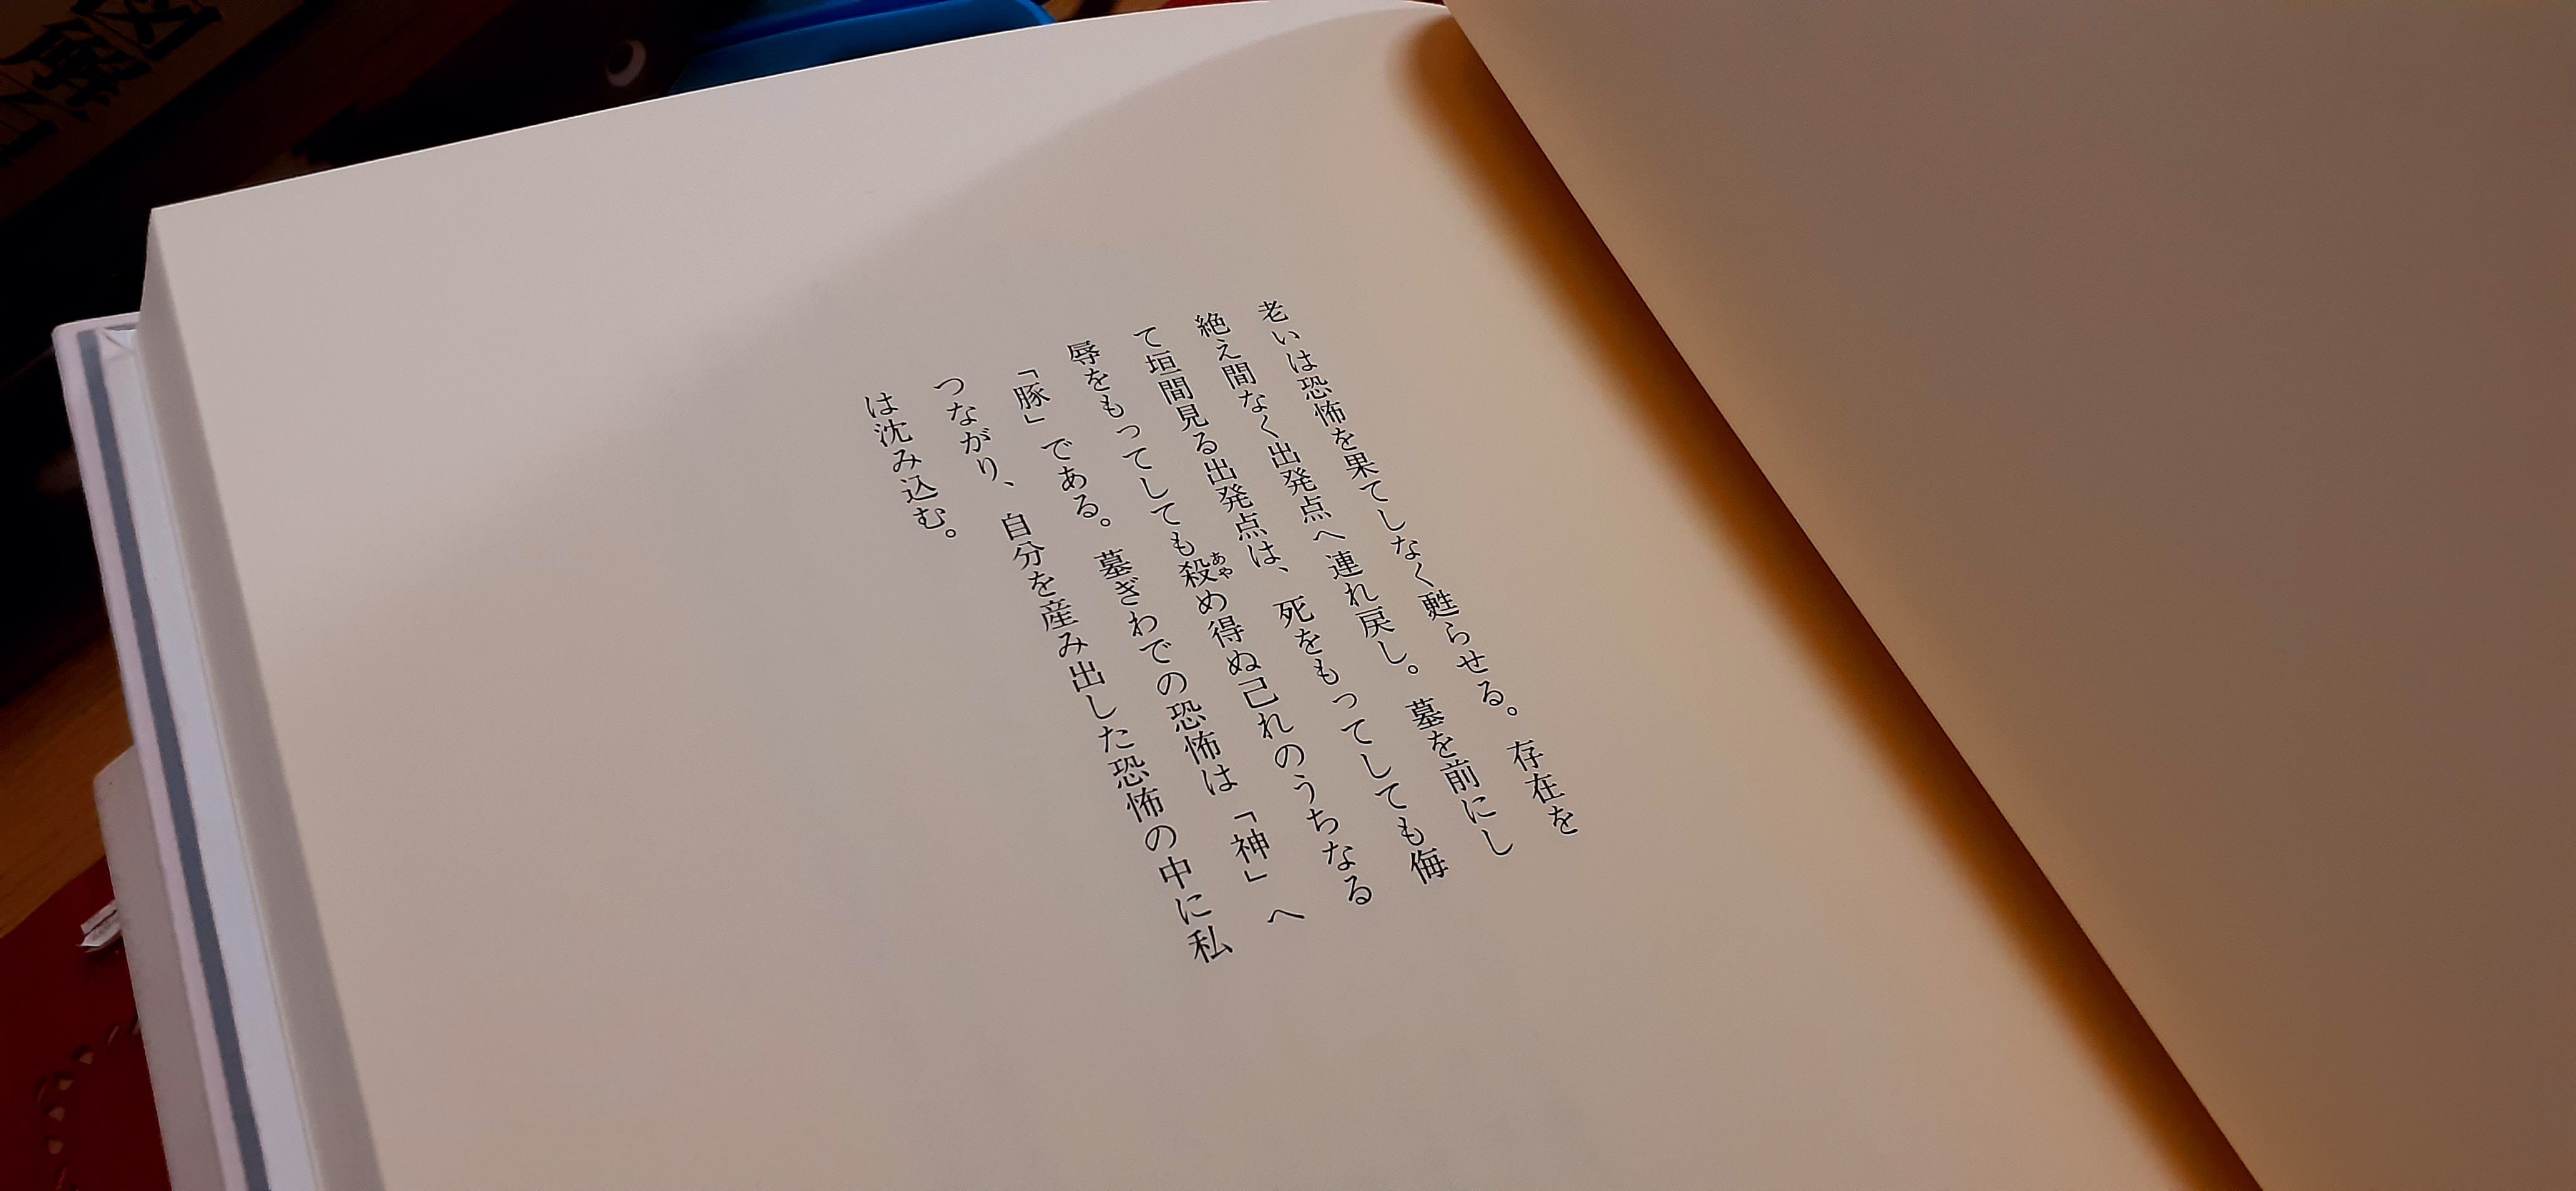 老いは恐怖を果てしなく甦らせる。存在を
絶え間なく出発点へ連れ戻し。墓を前にし
て垣間見る出発点は、死をもってしても侮
辱をもってしても殺め得ぬ己れのうちなる
あや
「豚」である。墓ぎわでの恐怖は「神」へ
つながり、自分を産み出した恐怖の中に私
は沈み込む。
図解